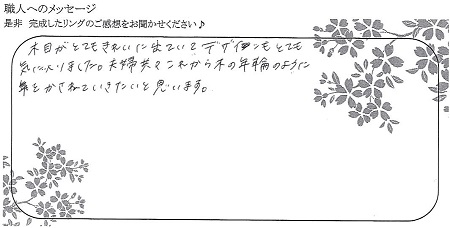 職人へのメッセージ
是非 完成したリングのご感想をお聞かせください♪
木目がとてもきれいに出ていてデザインもとても
気に入りました。夫婦共々これから木の年輪のように
年をかさねていきたいと思います。